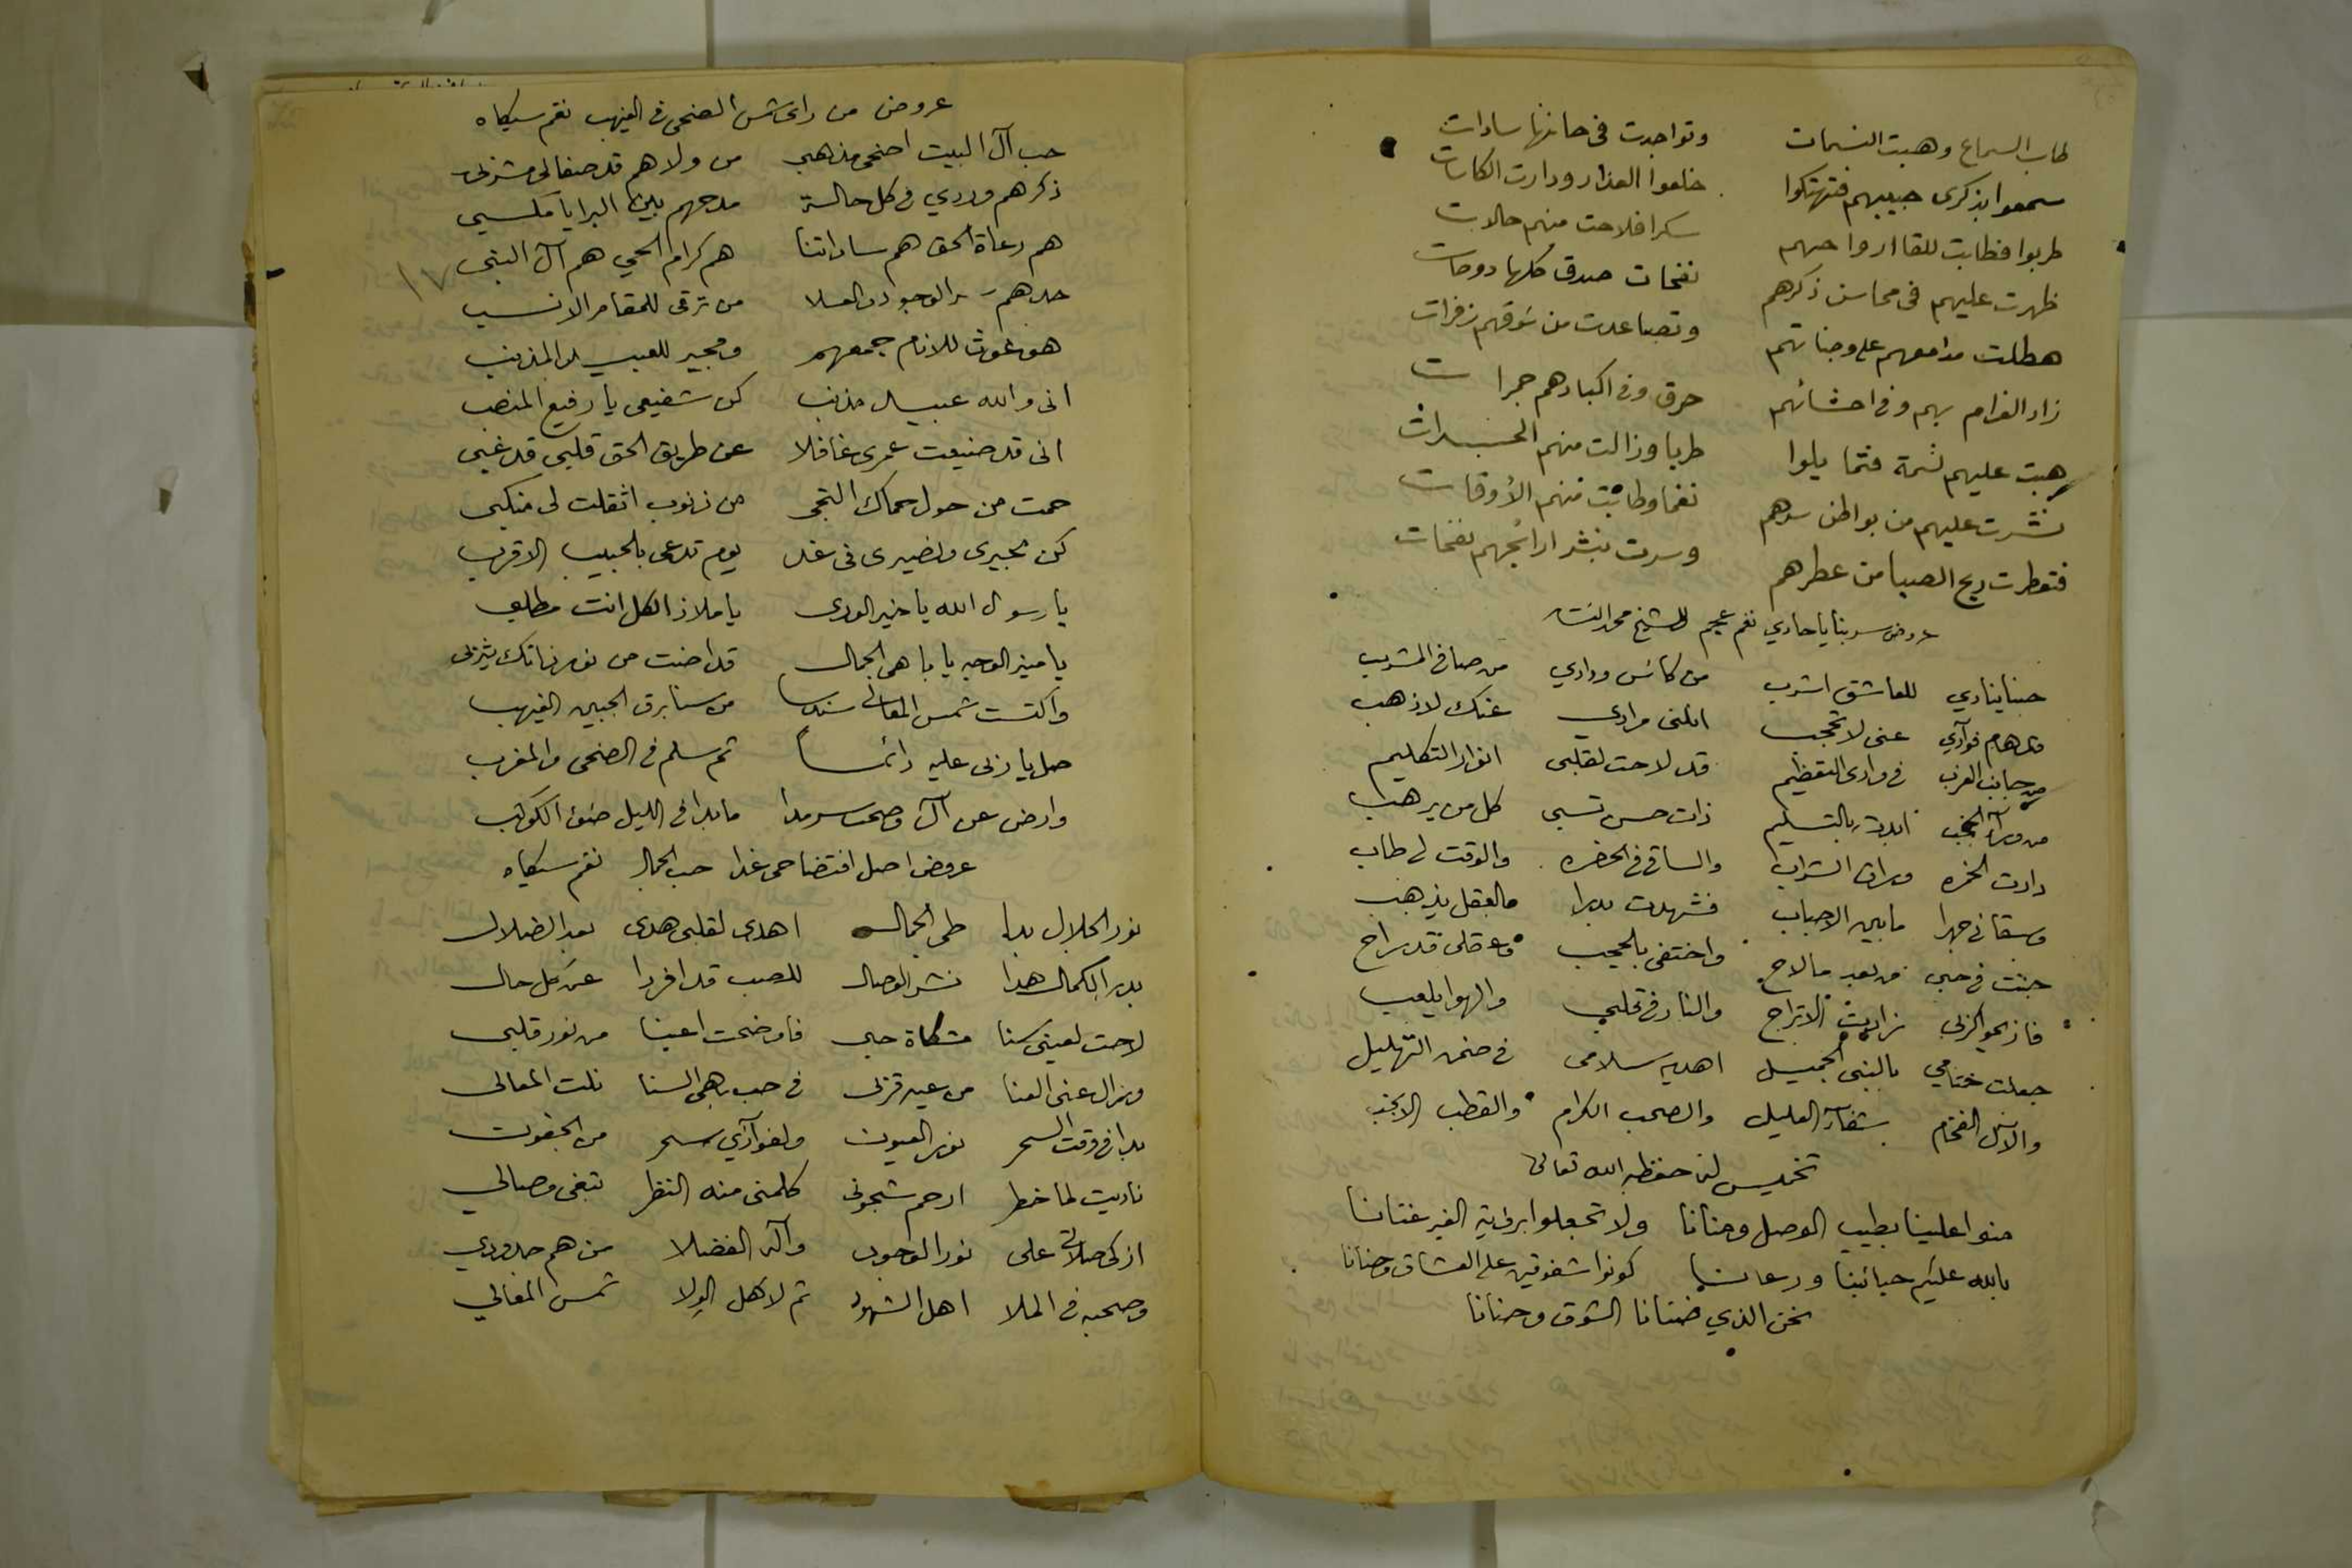 طاب السماع وهبت النسمات وتواجدت فى حانها سادات
سمعوا بذكرى حبيبهم فتهتكوا خلعوا العذار ودارت الكاسات
طربوا فطابت للقا ارواحهم سكرا فلاحت منهم حالات
ظهرت عليهم فى محاسن ذكرهم نفحات صدق كلها دوحات
هطلت مدامعهم على وجناتهم وتصاعدت من شوقهم زفرات
زاد الغرام بهم وفى احشائهم حرق وفى اكبادهم جمرات
هبت عليهم نسمة فتمايلوا طربا وزالت منهم الحسرات
نشرت عليهم من بواطن سرهم نغما وطابت منهم الأوقات
فتعطرت ريح الصبا من عطرهم وسرت بنشر ارائجهم نفحات
عروض سر بنا يا حادي نغم عجم للشيخ محمد
حبنا ينادي للعاشق اشرب من كاس ودادي من صافى المشرب
قد هام فوآدي عنى لا تحجب انلنى مرادي عنك لا ذهب
من جانب الغرب فى وادى التعظيم قد لاحت لقلبى انوار التكليم
من ورآء الحجب ابدت بالتسليم ذات حسن تسبى كل من يرهب
دارت الخمره وراق الشراب والساقى فى الحضره والوقت لى طاب
وسقانى جهرا ما بين الاحباب فشهدت بدرا والعقل يذهب
جننت فى حبى من بعد ما لاح واختفى بالحجب وعقلى قد راح
زادت الاتراح والنار فى قلبي والهوا يلعب
جعلت ختامي بالنبى الجميل اهديه سلامى فى ضمن التهليل
والآل الفخام بشفآء العليل والصحب الكرام والقطب الانجب
تخميس لنا حفظه الله تعالى
منوا علينا بطيب الوصل وحنانا ولا تجعلوا برؤية الغير غنتانا
بالله عليكم حبائبنا ورعانا كونوا شفوقين على العشاق وحنانا
نحن الذي ضنانا الشوق وحنانا
عروض من راى شمس الضحى فى الغيهب نغم سيكاه
حب آل البيت اضحى مذهبي من ولاهم قد صفا لى مشربى
ذكرهم وردي فى كل حالة مدحهم بين البرايا مكسبي
هم رعاة الحق هم ساداتنا هم كرام الحي هم آل النبى
١٧
جدهم سر الوجود والعلا من ترقى للمقام الانسب
هو غوث للانام جمعهم ومجير للعبيد المذنب
انى والله عبيد مذنب كن شفيعى يا رفيع المنصب
انى قد ضيعت عمرى غافلا عن طريق الحق قلبى قد غبى
حمت من حول حماك التجى من ذنوب اثقلت لى منكبى
كن مجيرى ونصيرى فى غد يوم تدعى بالحبيب الاقرب
يا رسول الله يا خير الورى يا ملاذ الكل انت مطلبى
يا منير الوجه يا باهى الجمال قد اضئت من نور ذاتك يثربى
واكتست شمس المعالى سندسا من سنا برق الجبين الغيهب
صل يا ربى عليه دائماً ثم سلم فى الضحى والمغرب
وارض عن آل وصحب سرمدا ما بدا فى الليل ضوء الكوكب
عروض اصل افتضاحى غدا حب الجمال نغم سيكاه
نور الجلال بدا طى الجمال اهدى لقلبى هدى بعد الضلال
بدر الكمال هدا نشر الوصال للصب قد افردا عن كل حال
لاحت لعينى سنا مشكاة حبى فاوضحت اعينا من نور قلبى
وزال عنى العنا من عين قربى فى حب باهى السنا نلت المعالى
بدا فى وقت السحر نور العيون ولفوآدي سحر من الجفون
ناديت لما خطر ارحم شجونى كلمنى منه النظر تبغى وصالي
ازكى صلاتى على نور الوجود وآله الفضلا من هم جدودي
وصحبه فى الملا اهل الشهود ثم لاهل الولا شمس المعالي